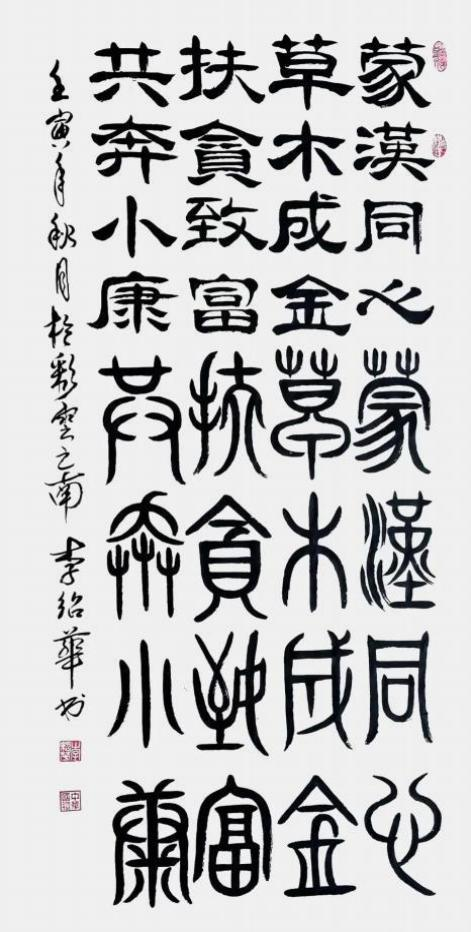 蒙漢同心蒙漢同心
草木成金草木成金
扶貪致富扶貪致富
共奔小康共奔小康
壬寅年秋月於彩雲之南 李紹華書